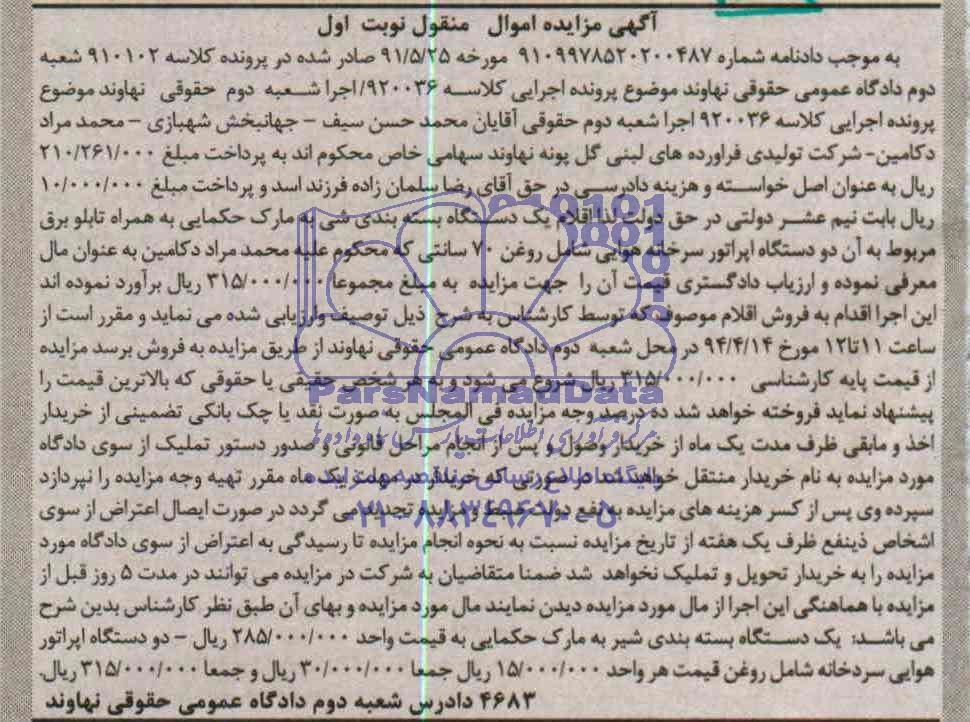 آگهی مزایده اموال منقول نوبت اول
به موجب دادنامه شماره ۹۱۰۹۹۷۸۵۲۰۲۰۰۴۸۷ مورخه ۹۱/۵/۲۵ صادر شده در پرونده کلاسه ۹۱۰۱۰۲ شعبه
دوم دادگاه عمومی حقوقی نهاوند موضوع پرونده اجرایی کلاسه ۹۲۰۰۳۶/اجرا شعبه دوم حقوقی نهاوند موضوع
پرونده اجرایی کلاسه ۹۲۰۰۳۶ اجرا شعبه دوم حقوقی آقایان محمد حسن سیف – جهانبخش شهبازی – محمد مراد
دکامین- شرکت تولیدی فراورده های لبنی گل پونه نهاوند سهامی خاص محکوم اند به پرداخت مبلغ ۲۱۰/۲۶۱/۰۰۰
ریال به عنوان اصل خواسته و هزینه دادرسی در حق آقای رضا سلمان زاده فرزند اسد و پرداخت مبلغ ۱۰/۰۰۰/۰۰۰
ریال بابت نیم عشر دولتی در حق دولت لذا اقلام یک دستگاه بسته بندی شی به مارک حکمایی به همراه تابلو برق
مربوط به آن دو دستگاه اپراتور سرخانه هوایی شامل روغن ۷۰ سانتی که محکوم علیه محمد مراد دکامین به عنوان مال
معرفی نموده و ارزیاب دادگستری قیمت آن را جهت مزایده به مبلغ مجموعا ۳۱۵/۰۰۰/۰۰۰ ریال برآورد نموده اند
این اجرا اقدام به فروش اقلام موصوف که توسط کارشناس به شرح ذیل توصیف وارزیابی شده می نماید و مقرر است از
ساعت ۱۱تا۱۲ مورخ ۹۴/۴/۱۴ در محل شعبه دوم دادگاه عمومی حقوقی نهاوند از طریق مزایده به فروش برسد مزایده
از قیمت پایه کارشناسی ۳۱۵/۰۰۰/۰۰۰ ریال شروع می شود و به هر شخص حقیقی یا حقوقی که بالاترین قیمت را
پیشنهاد نماید فروخته خواهد شد ده درصد وجه مزایده فی المجلس به صورت نقد یا چک بانکی تضمینی از خریدار
اخذ و مابقی ظرف مدت یک ماه از خریدار وصول و پس از انجام مراحل قانونی و صدور دستور تملیک از سوی دادگاه
مورد مزایده به نام خریدار منتقل خواهد شد در صورتی که خریدار در مهلت یک ماه مقرر تهیه وجه مزایده را نپردازد
سپرده وی پس از کسر هزینه های مزایده به نفع دولت ضبط و مزایده تجدید می گردد در صورت ایصال اعتراض از سوی
اشخاص ذینفع ظرف یک هفته از تاریخ مزایده نسبت به نحوه انجام مزایده تا رسیدگی به اعتراض از سوی دادگاه مورد
مزایده را به خریدار تحویل و تملیک نخواهد شد ضمنا متقاضیان به شرکت در مزایده می توانند در مدت ۵ روز قبل از
مزایده با هماهنگی این اجرا از مال مورد مزایده دیدن نمایند مال مورد مزایده و بهای آن طبق نظر کارشناس بدین شرح
می باشد: یک دستگاه بسته بندی شیر به مارک حکمایی به قیمت واحد ۲۸۵/۰۰۰/۰۰۰ ریال – دو دستگاه اپراتور
هوایی سردخانه شامل روغن قیمت هر واحد ۱۵/۰۰۰/۰۰۰ ریال جمعا ۳۰/۰۰۰/۰۰۰ ریال و جمعا ۳۱۵/۰۰۰/۰۰۰ ریال.
۴۶۸۳ دادرس شعبه دوم دادگاه عمومی حقوقی نهاوند
ParsNamadData
۰۲۱-۸۸۳۴۹۶۷۰-۵